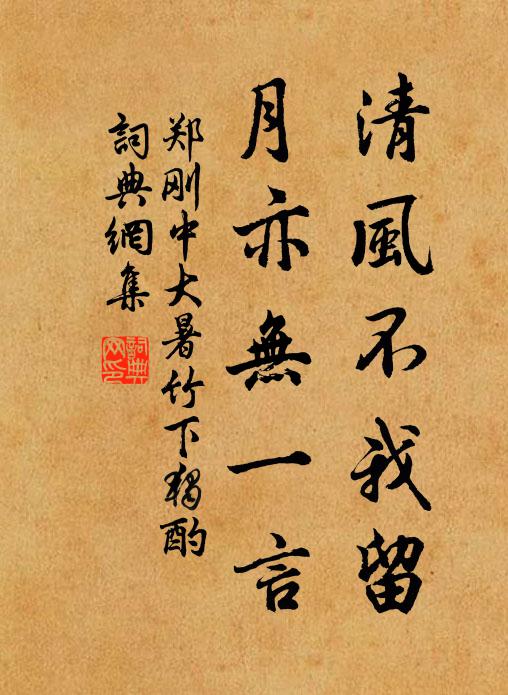 清風不我留
月亦無一言
郑刚中大暑竹下獨酌
詞典網集
詞典網印